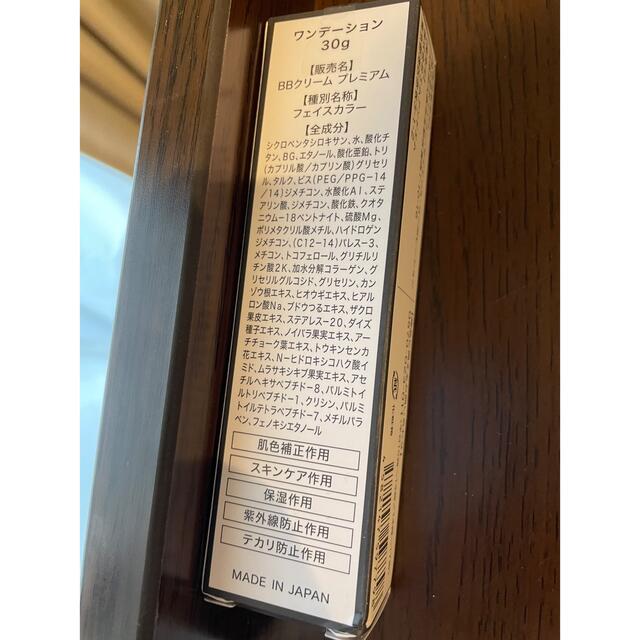 ワンデーション
30g
【販売名】
BBクリーム プレミアム
【種別名称】
フェイスカラー
【全成分】
シクロペンタシロキサン、水、酸化チ
タン、BG、エタノール、酸化亜鉛、トリ
(カプリル酸/カプリン酸)グリセリ
ル、タルク、ビス(PEG/PPG-14
/14)ジメチコン、水酸化Al、ステ
アリン酸、ジメチコン、酸化鉄、クオタ
ニウム-18ベントナイト、硫酸Mg、
ポリメタクリル酸メチル、ハイドロゲン
ジメチコン、(C12-14)パレス-3、
メチコン、トコフェロール、グリチルリ
チン酸2K、加水分解コラーゲン、グ
リセリルグルコシド、グリセリン、カン
ゾウ根エキス、ヒオウギエキス、ヒアル
ロン酸Na、ブドウつるエキス、ザクロ
果皮エキス、ステアレス-20、ダイズ
種子エキス、ノイバラ果実エキス、アー
チチョーク葉エキス、トウキンセンカ
花エキス、N-ヒドロキシコハク酸イ
ミド、ムラサキシキブ果実エキス、アセ
チルヘキサペプチド-8、パルミトイ
ルトリペプチド-1、クリシン、パルミ
トイルテトラペプチド-7、メチルパラ
ベン、フェノキシエタノール
肌色補正作用
スキンケア作用
保湿作用
紫外線防止作用
テカリ防止作用
MADE IN JAPAN